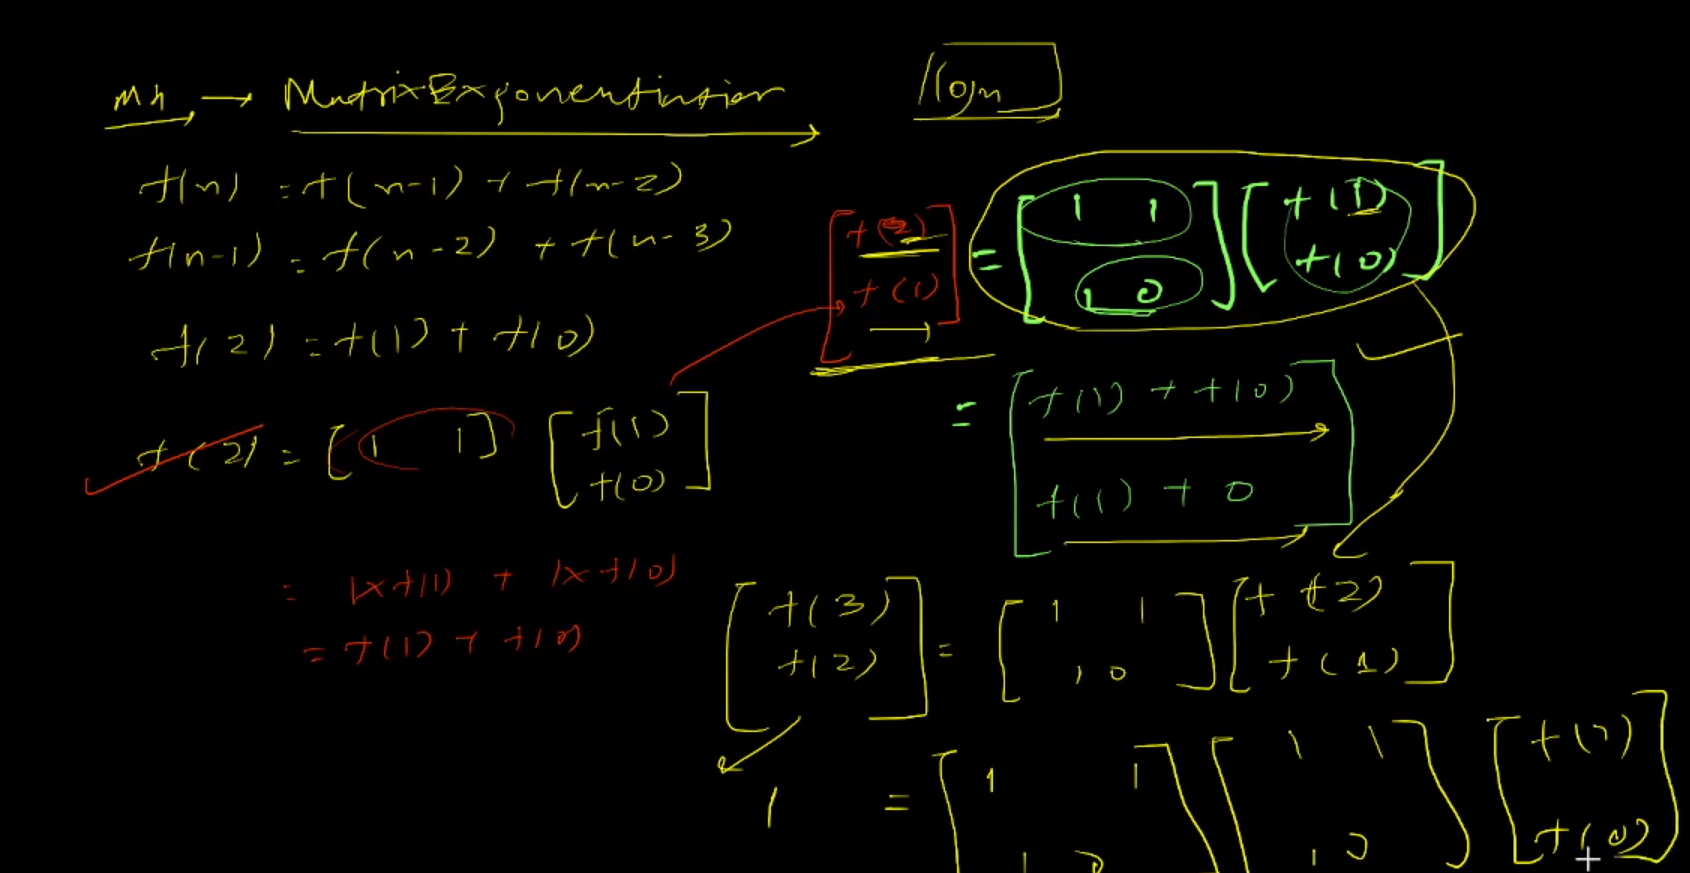 Mh → Matrix Exponentiation
logn
f(n) = f(n-1) + f(n-2)
f(n-1) = f(n-2) + f(n-3)
f(2) = f(1) + f(0)
f(2) = [1 1] [f(1)
f(0)]
= 1×f(1) + 1×f(0)
= f(1) + f(0)
[f(2)
f(1)] = [1 1
1 0] [f(1)
f(0)]
= [f(1) + f(0)
f(1) + 0]
[f(3)
f(2)] = [1 1
1 0] [f(2)
f(1)]
= [1 1
1 0] [1 1
1 0] [f(1)
f(0)]